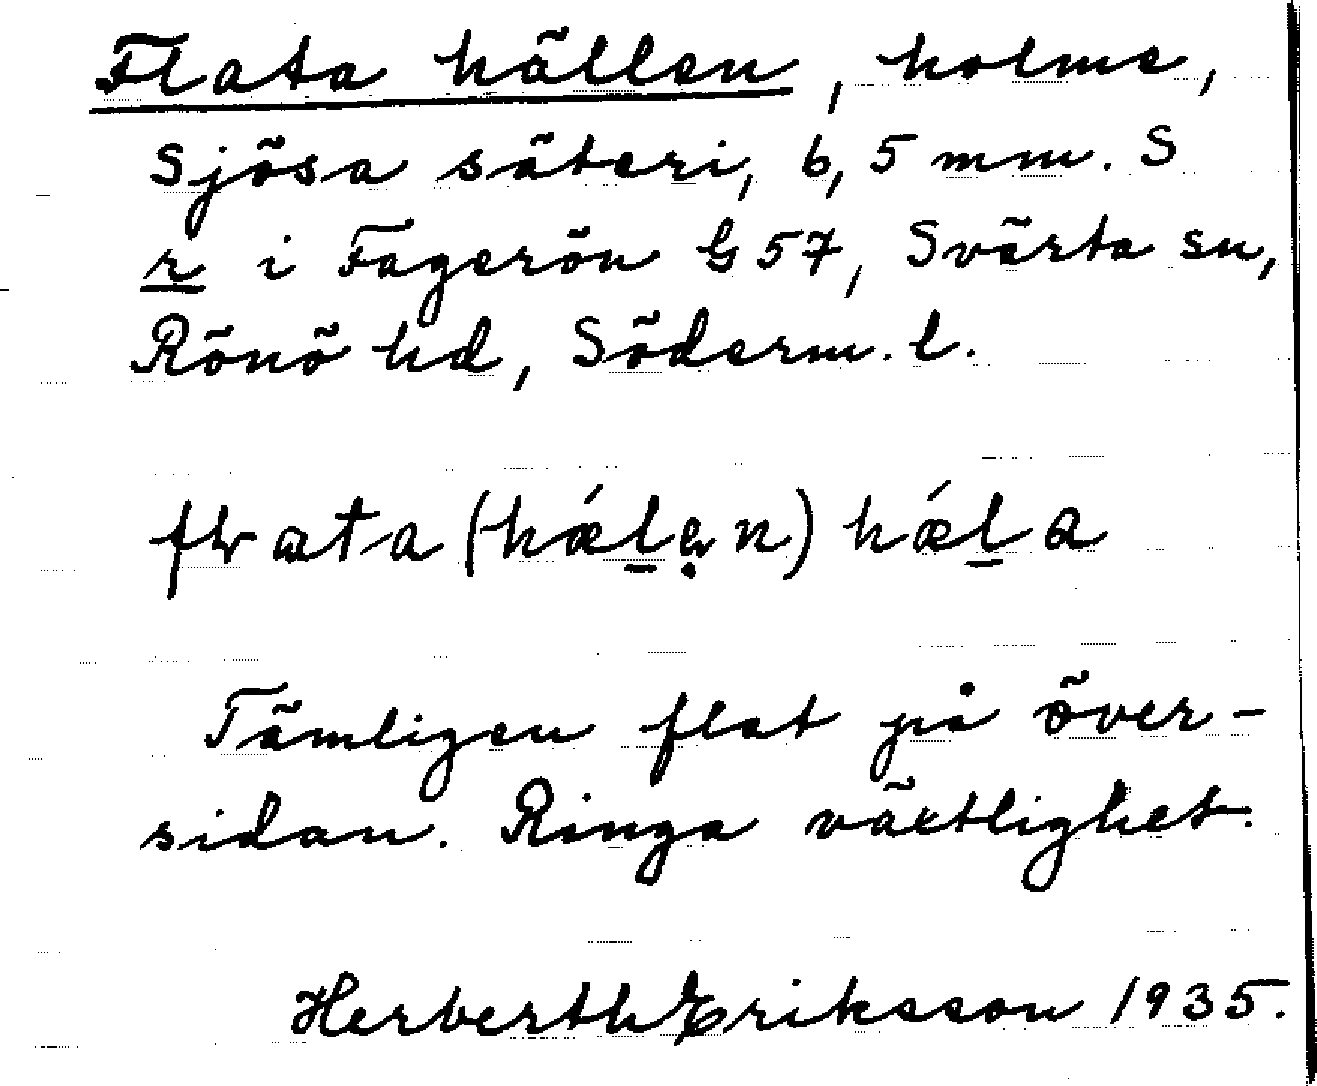 Flata hällen, holme,
Sjösa säteri, 6,5 mm. S
r i Fagerön G 57, Svärta sn,
Rönö hd, Söderm. l.
flata (hǽlęn) hǽla
Tämligen flat på över-
sidan. Ringa växtlighet.
Herberth Eriksson 1935.